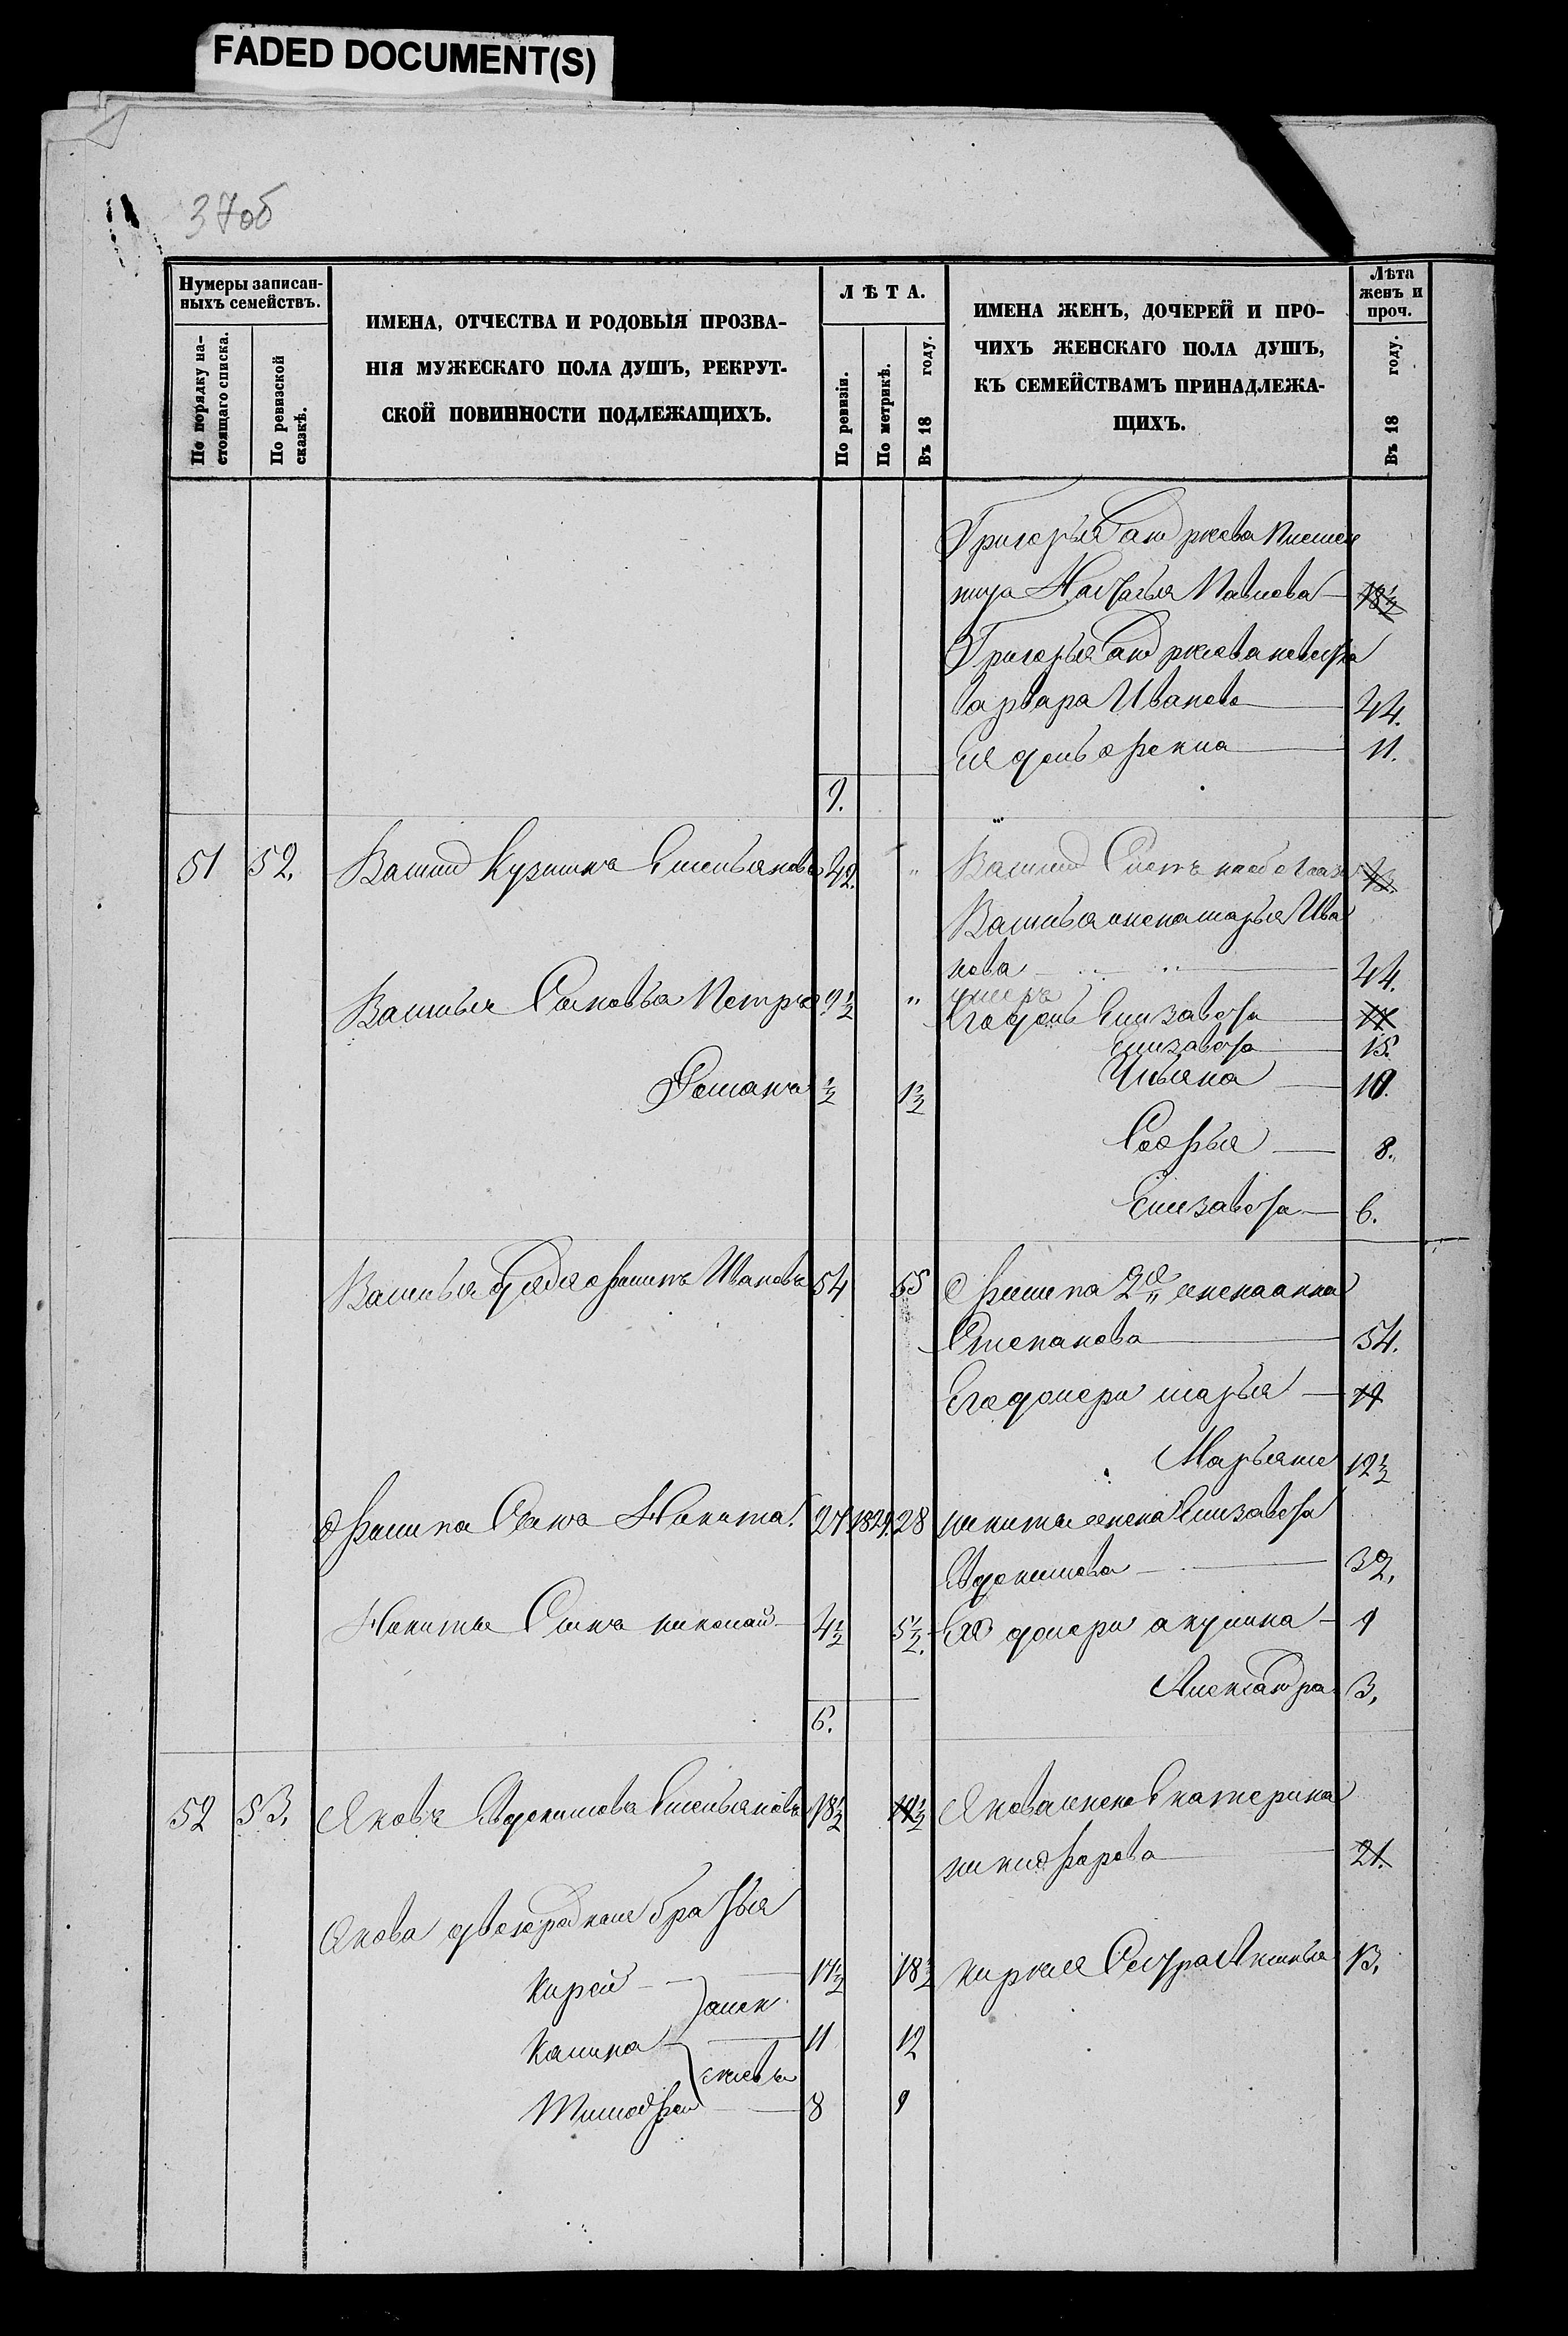 FADED DOCUMENT(S)
37об
Нумеры записан-
ныхъ семействъ.
По порядку на-
стоящаго списка.
По ревизской
сказкѣ.
ИМЕНА, ОТЧЕСТВА И РОДОВЫЯ ПРОЗВА-
НІЯ МУЖЕСКАГО ПОЛА ДУШЪ, РЕКРУТ-
СКОЙ ПОВИННОСТИ ПОДЛЕЖАЩИХЪ.
ЛѢТА.
По ревизіи.
По метрикѣ.
Въ 18 году.
ИМЕНА ЖЕНЪ, ДОЧЕРЕЙ И ПРО-
ЧИХЪ ЖЕНСКАГО ПОЛА ДУШЪ,
КЪ СЕМЕЙСТВАМЪ ПРИНАДЛЕЖА-
ЩИХЪ.
Лѣта
женъ и
проч.
Въ 18 году.
Григорья Андреева племен
ница Настасья Павлова 18½
Григорья Андреева невестка
Варвара Иванова 44.
Ея дочь Фекла 11.
9.
51 52. Василий Кузминъ Емельяновъ 42. " Василий
Василья жена Марья Ива
нова 44.
Василья Сыновья Петръ 9½ " умеръ
Его дочь Елизавета
Елизавета 15.
Романъ ½ 1½ Ульяна 10.
Софья 8.
Елизавета 6.
Василья дядя Филипъ Ивановъ 54 55 Филипа 2я жена Анна
Степанова 54.
Его дочери Марья 19
Марьяна 12½
Филипа Сынъ Никита. 27 1829. 28 Никиты жена Елизавета
Евдокимова 32.
Никиты Сынъ Николай 4½ 5½. Ея дочери Акулина 9
Александра 3.
6.
52 53. Яковъ Евдокимовъ Емельяновъ 18½ 19½ Якова жена Екатерина
Никифорова 21.
Якова двоюродные братья
Кирей 17½ 18½ Кирея Сестра Аксинья 13.
Алек
Калина 11 12
сеевы
Тимофей 8 9